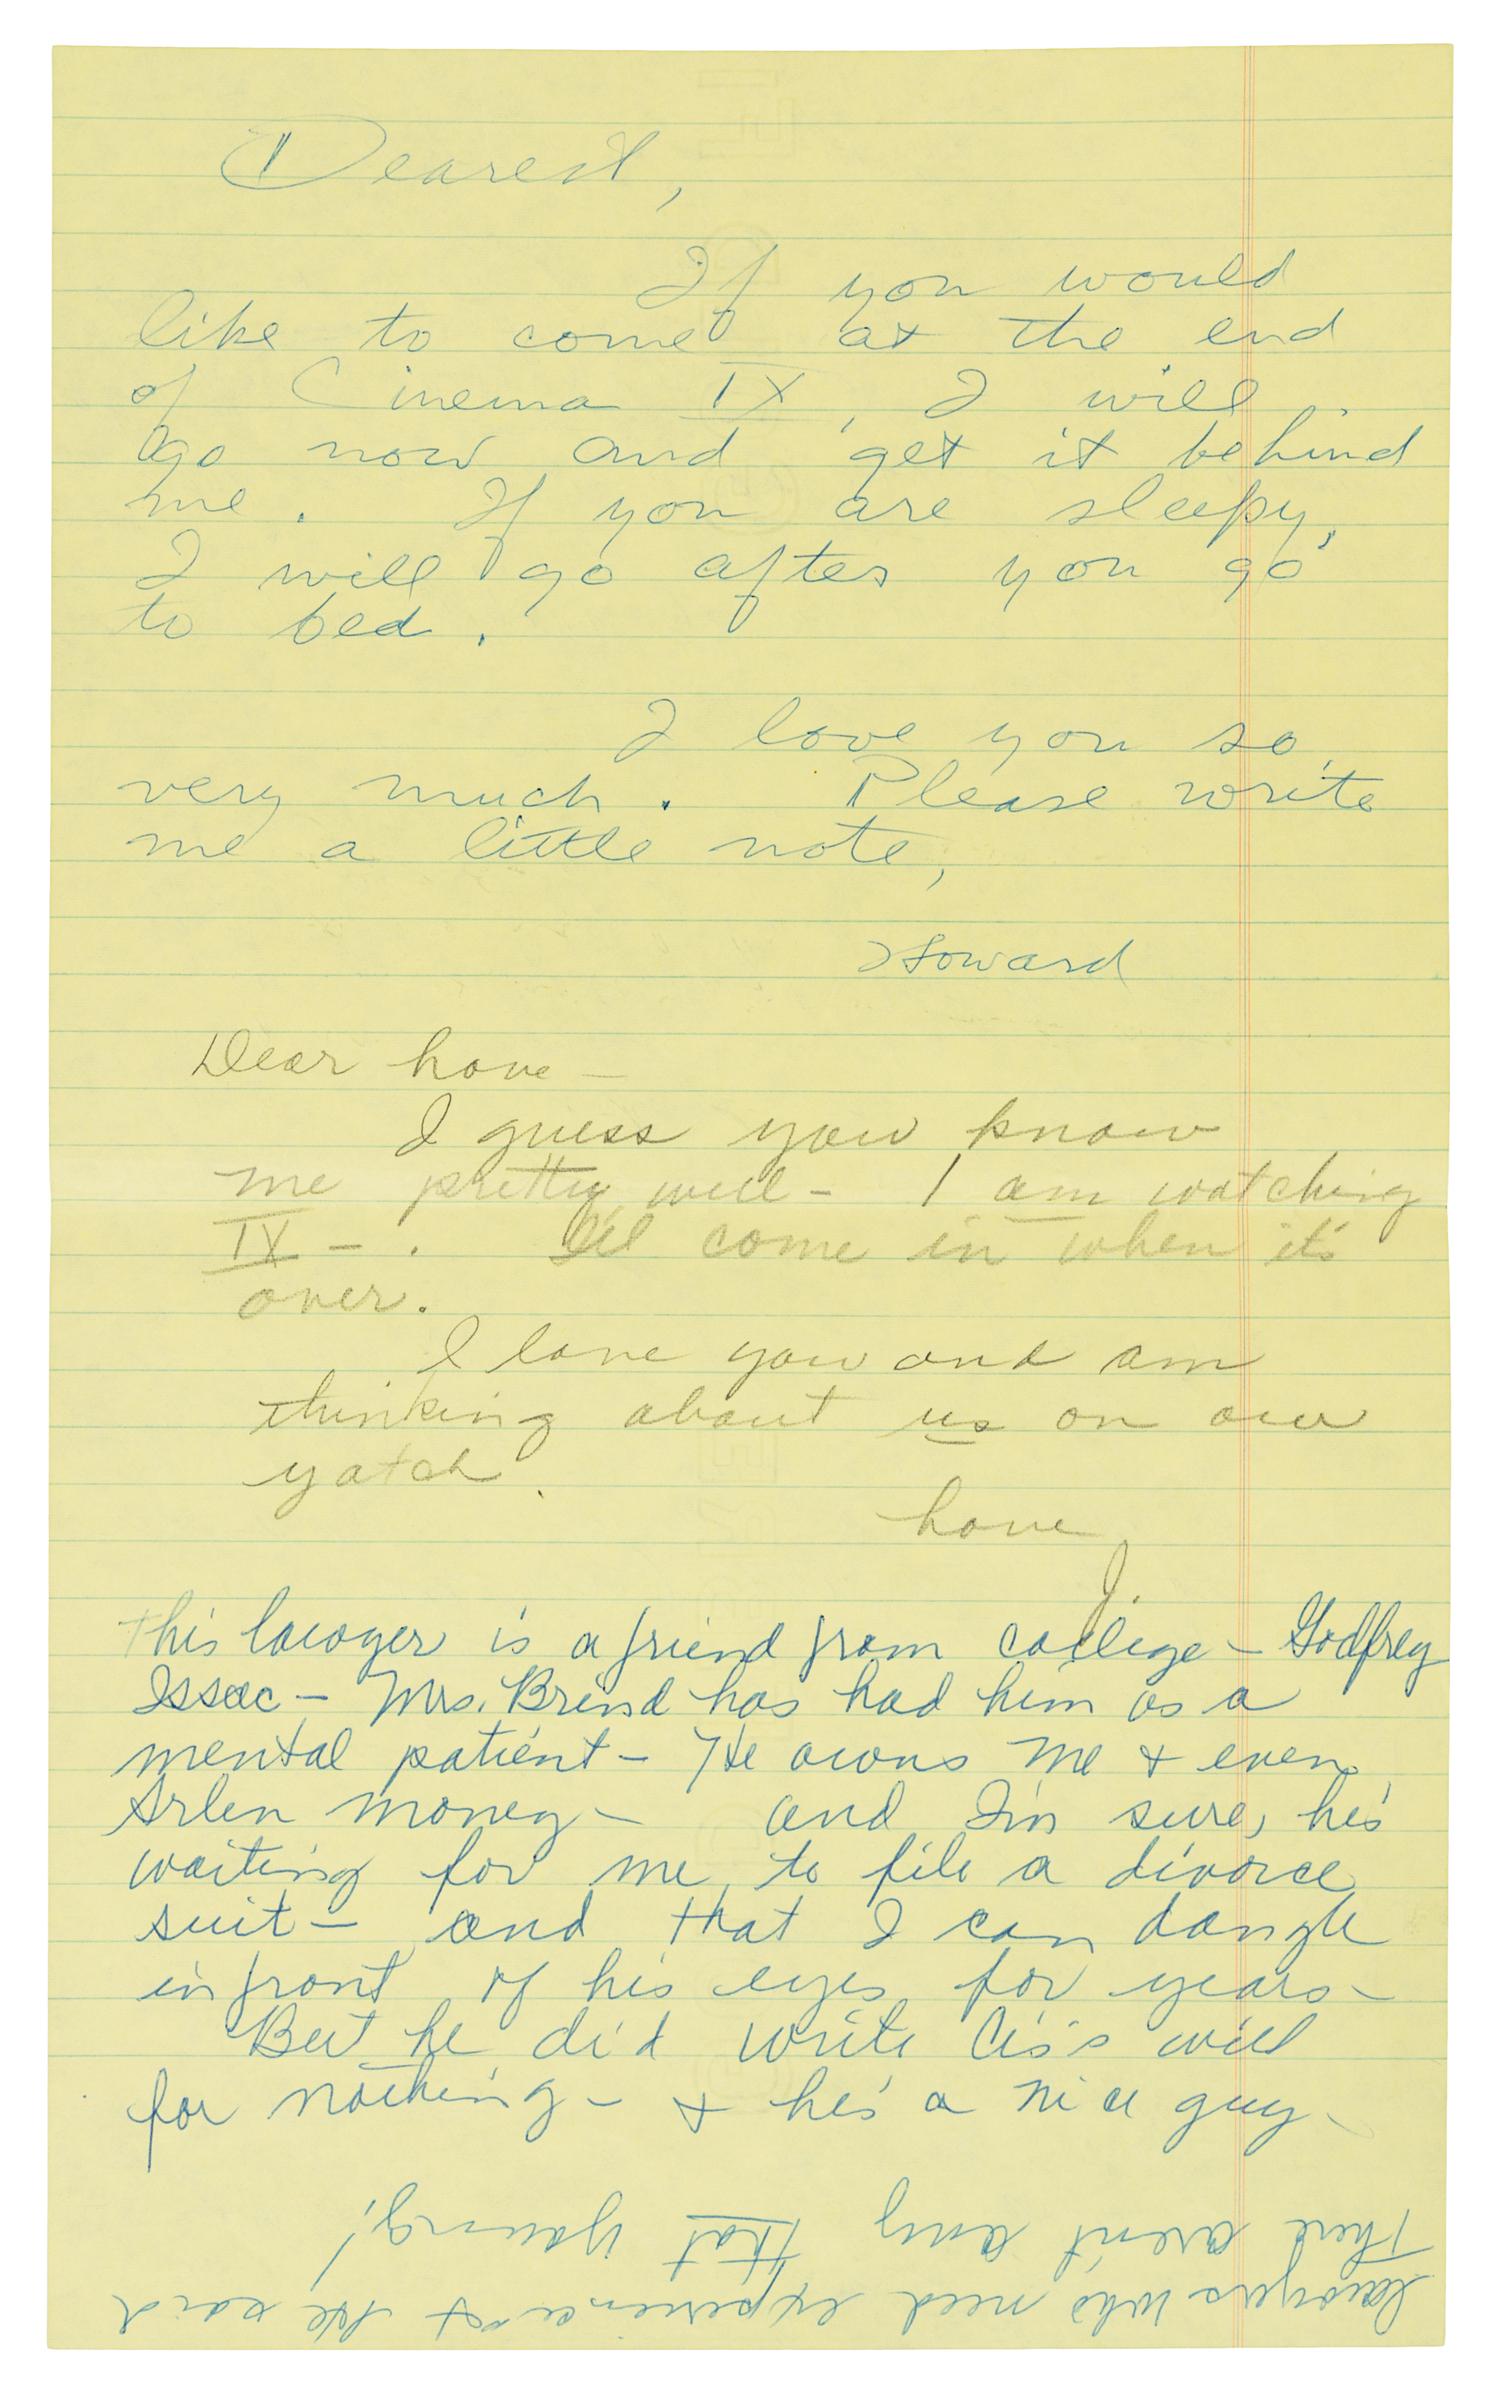 Dearest,
If you would
like to come at the end
of Cinema IX, I will
go now and get it behind
me. If you are sleepy,
I will go after you go
to bed.
I love you so
very much. Please write
me a little note,
Howard
Dear Love –
I guess you know
me pretty well – I am watching
IX – . I'll come in when it's
over.
I love you and am
thinking about us on our
yatch.
Love,
J.
This lawyer is a friend from college – Godfrey
Issac – Mrs. Brind has had him as a
mental patient – He owes me & even
Arlen money – and I'm sure, he's
waiting for me to file a divorce
suit – and that I can dangle
in front of his eyes for years –
But he did write Cis's will
for nothing – & he's a nice guy –
lawyers who need experience & he said
There aren't any that young!